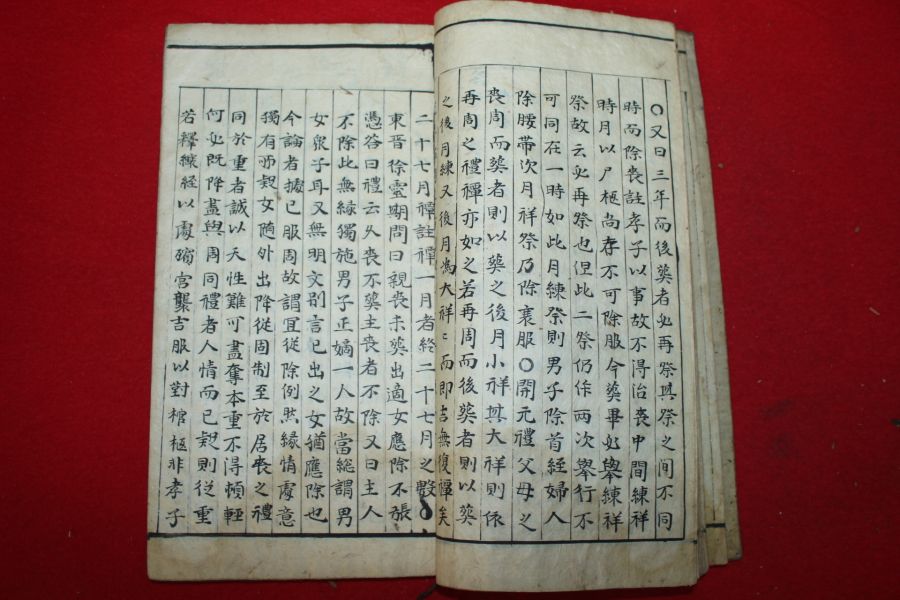 ○又曰三年而後葬者必再祭其祭之間不同
時而除喪註孝子以事故不得治喪中間練祥
時月以尸柩尚存不可除服今葬畢必舉練祥
祭故云必再祭也但此二祭仍作兩次舉行不
可同在一時如此月練祭則男子除首絰婦人
除腰帶次月祥祭乃除衰服○開元禮父母之
喪周而葬者則以葬之後月小祥其大祥則依
再周之禮禫亦如之若再周而後葬者則以葬
之後月練又後月為大祥〻而即吉無復禫矣
二十七月禫註禫一月者終二十七月之數
東晋徐靈期問曰親喪未葬出適女應除不張
憑答曰禮云久喪不葬主喪者不除又曰主人
不除此無緣獨施男子正嫡一人故當総謂男
女衆子耳又無明文別言已出之女猶應除也
今論者據已服周故謂宜從除例然緣情處意
獨有所疑女隨外出降從周制至於居喪之禮
同於重者誠以天性難可盡奪本重不得頓輕
何必既降盡與周同禮者人情而已疑則從重
若釋縗絰以處殯宮襲吉服以對棺柩非孝子